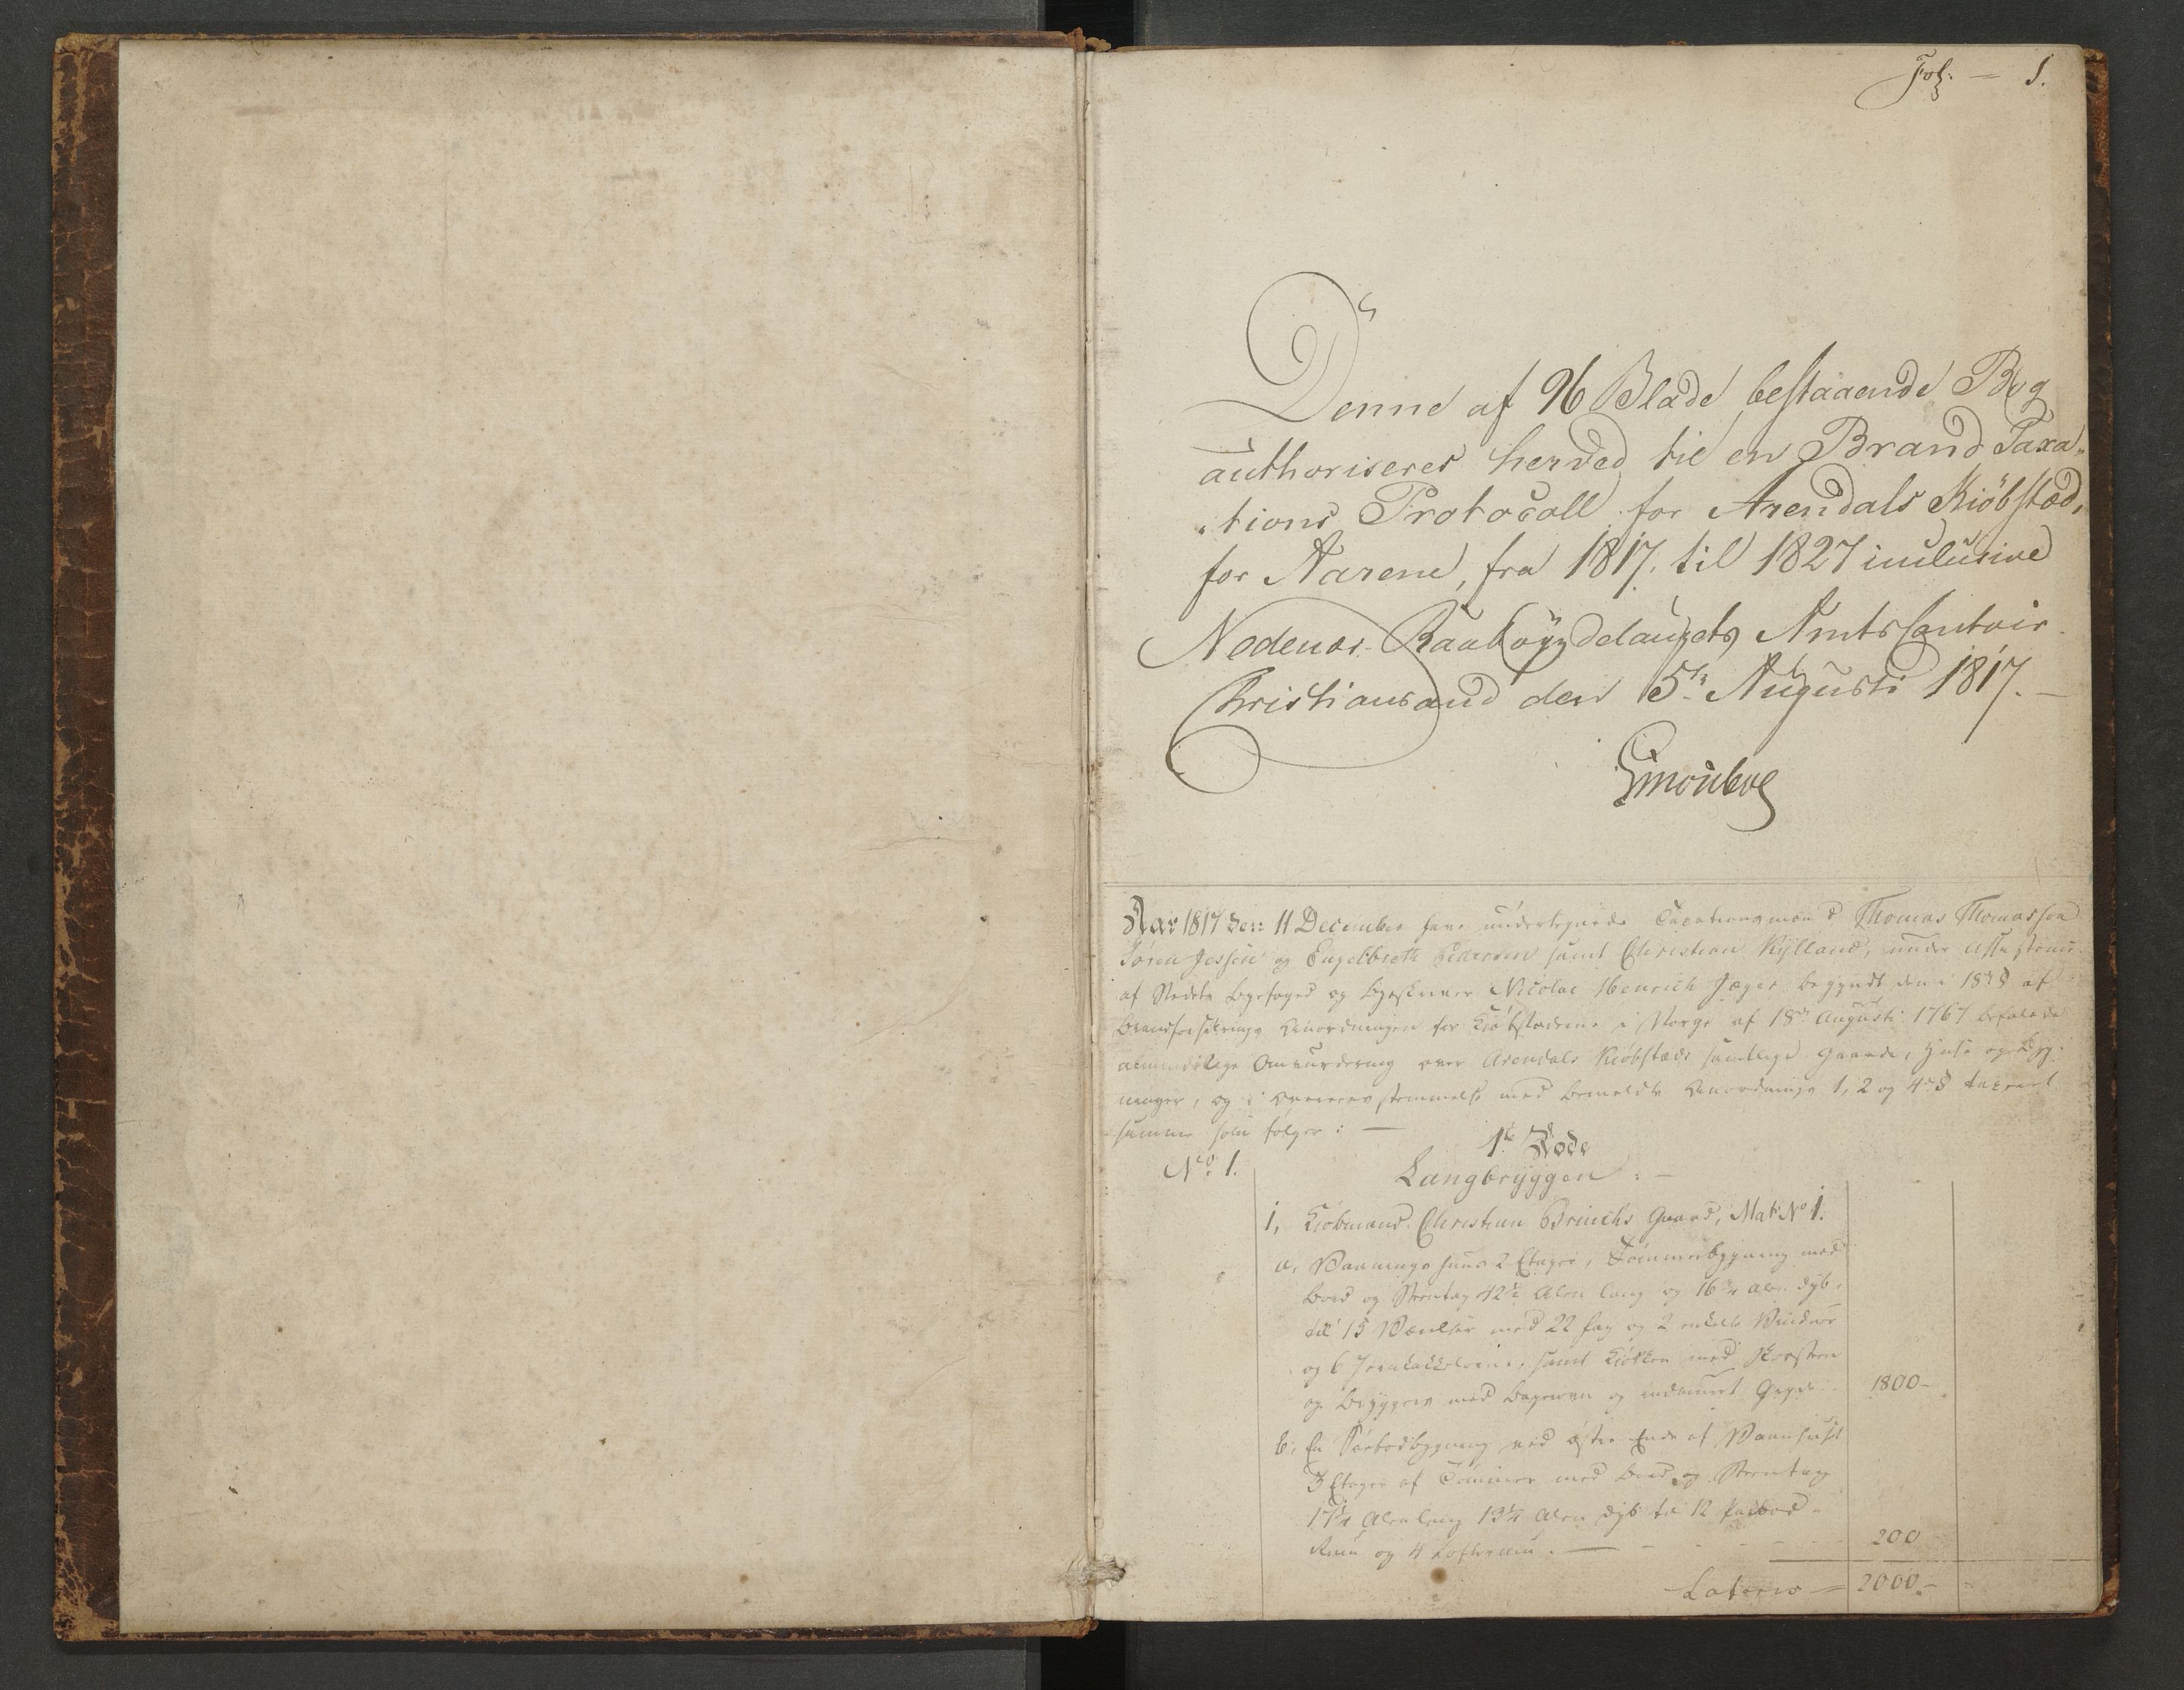 Fol: = 1.
Denne af 96 Blade bestaaende Bog
authoriseres herved til en Brand Taxa„
„tions Protocoll for Arendals Kiöbstæd,
for Aarene, fra 1817. til 1827 inclusive
Nedenes- Raabøygdelaugets Amts Contoir
Christiansand den 5te Augusti 1817. —
Aar 1817 den 11 December have undertegnede Taxationsmænd Thomas Thomassen
Søren Jessen og Engelbreth Pedersen samt Christian Kylland, under Assistence
af Stedets Byefoged og Byeskriver Nicolai Henrich Jæger begyndt den i 18de § af
Brandforsikrings Anordningen for Kiøbstæderne i Norge af 18de Augusti 1767 befalede
almindelige Omvurdering over Arendals Kiøbstæds samtlige Gaarde, Huse og Byg-
ninger, og i Overeensstemmelse med bemeldte Anordnings 1, 2 og 4de § taxeret
samme som følger: —
1te Rode
No 1.
Langbryggen: —
1, Kiøbmand Christian Brinchs Gaard, Mat: No 1.
a, Vaaningshuus 2 Etager, Tømmerbygning med
Bord og Steentag 42½ Alen lang og 16¾ Alen dyb,
til 15 Værelser med 22 fag og 2 enkelte Vinduer
og 6 Jernkakkelovne, samt Kiøkken med Skorsteen
og Bryggers med Bagerovn og indmuret Gryde 1800-
b, En Søebodbygning ved østre Ende af Vaanhuset
3 Etager af Tømmer med Bord og Steentag
17¼ Alen lang 13¼ Alen dyb til 12 Pakbod-
Rum og 4 Loftsrum. — 200
Lateris = 2000-